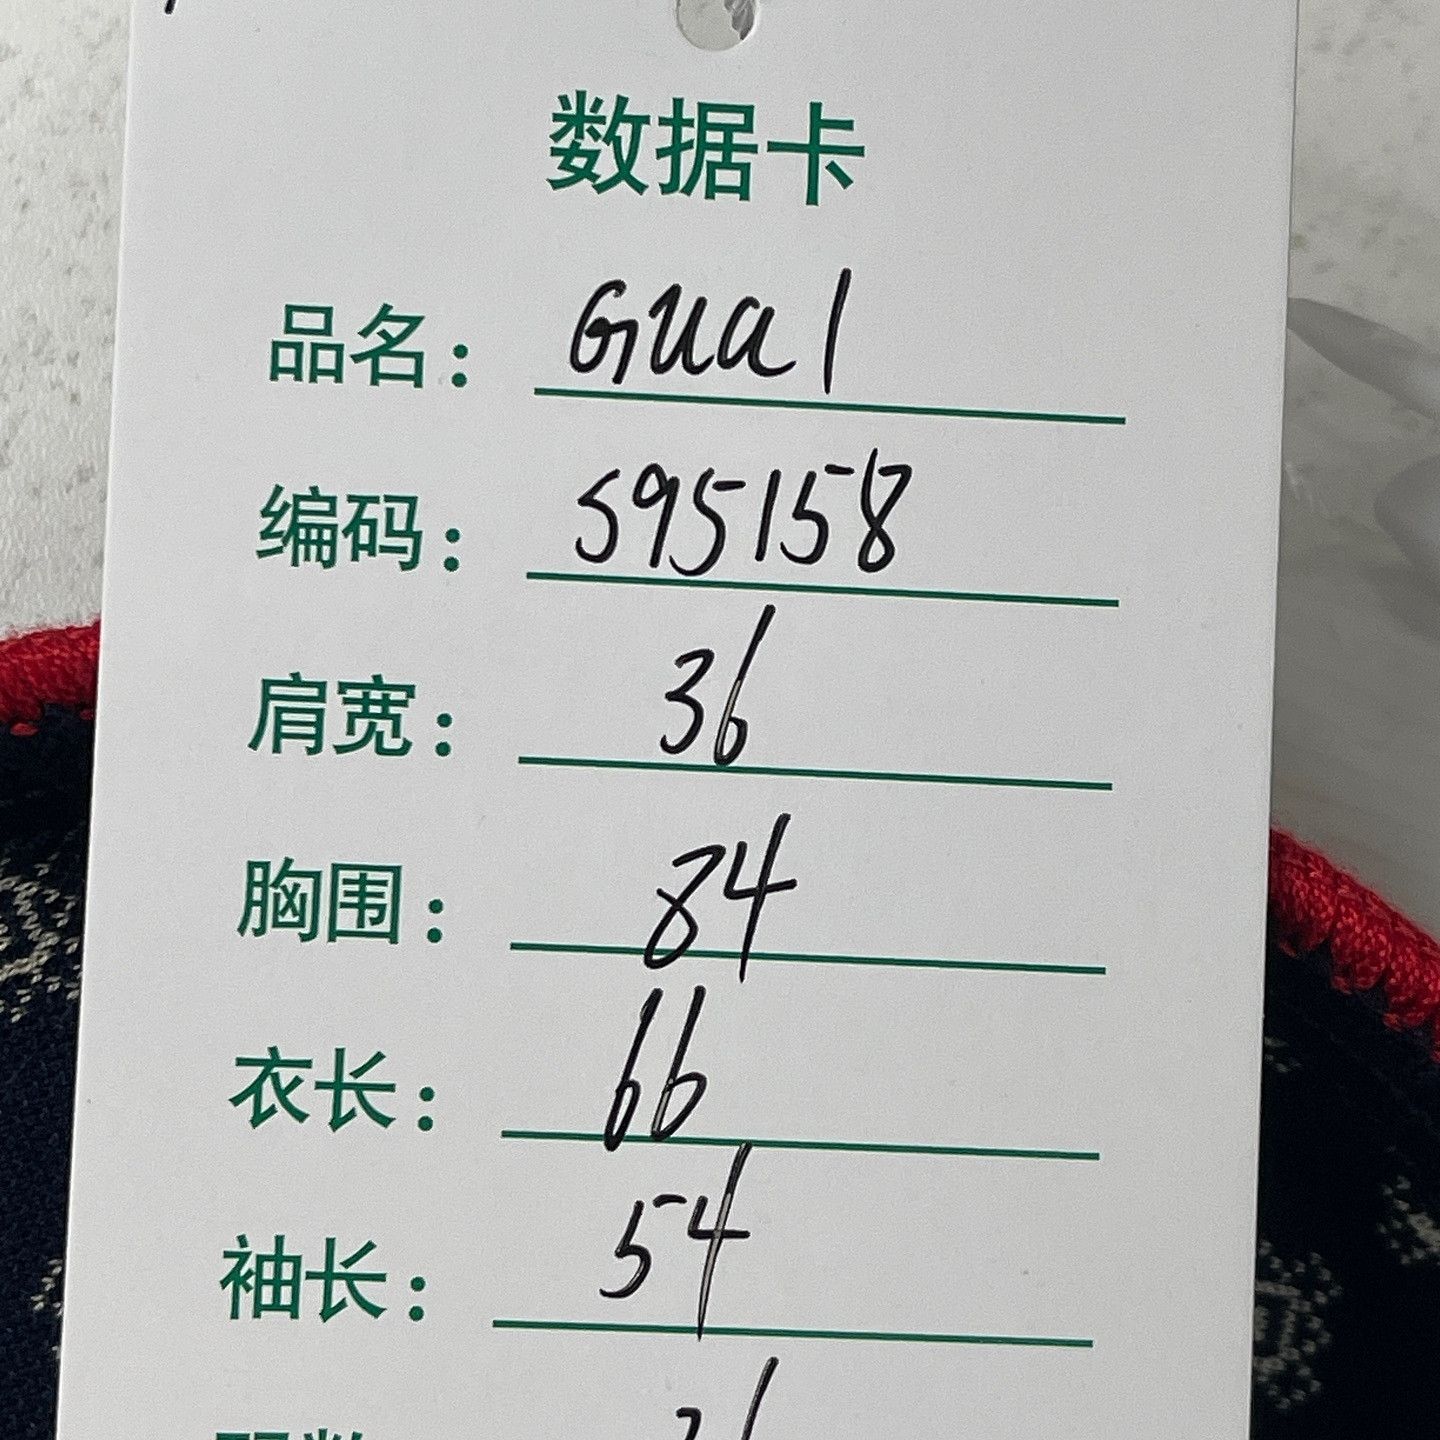 数据卡
品名: Gual
编码: 595158
肩宽: 36
胸围: 84
衣长: 66
袖长: 54